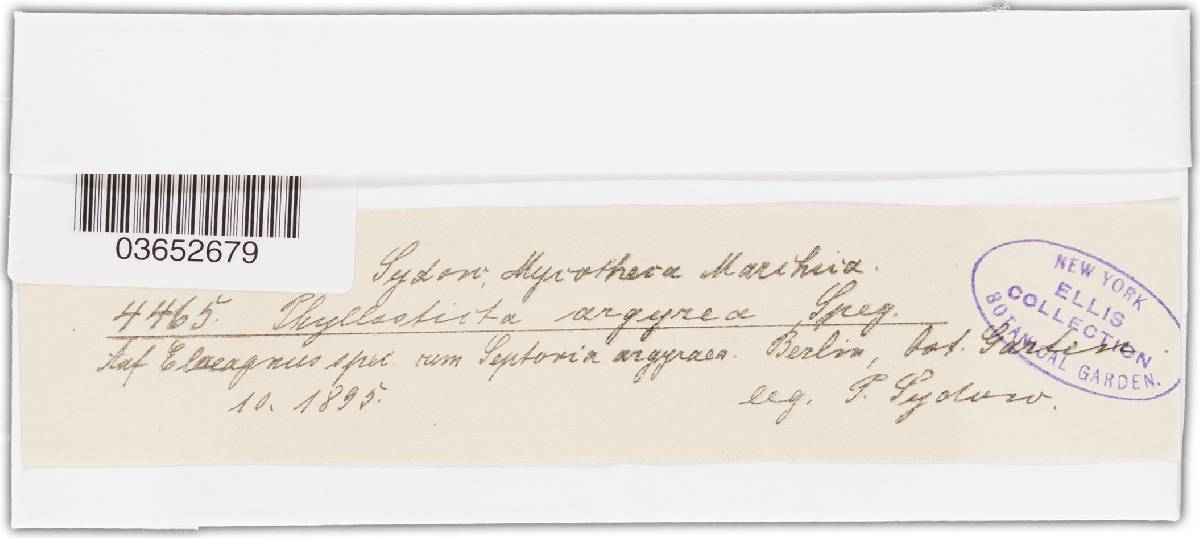 03652679
Sydow, Mycotheca Marchica.
4465. Phyllosticta argyrea Speg.
Auf Elaeagnus spec. cum Septoria argyraea. Berlin, bot. Garten
10. 1895.
leg. P. Sydow.
NEW YORK
ELLIS
COLLECTION
BOTANICAL GARDEN.